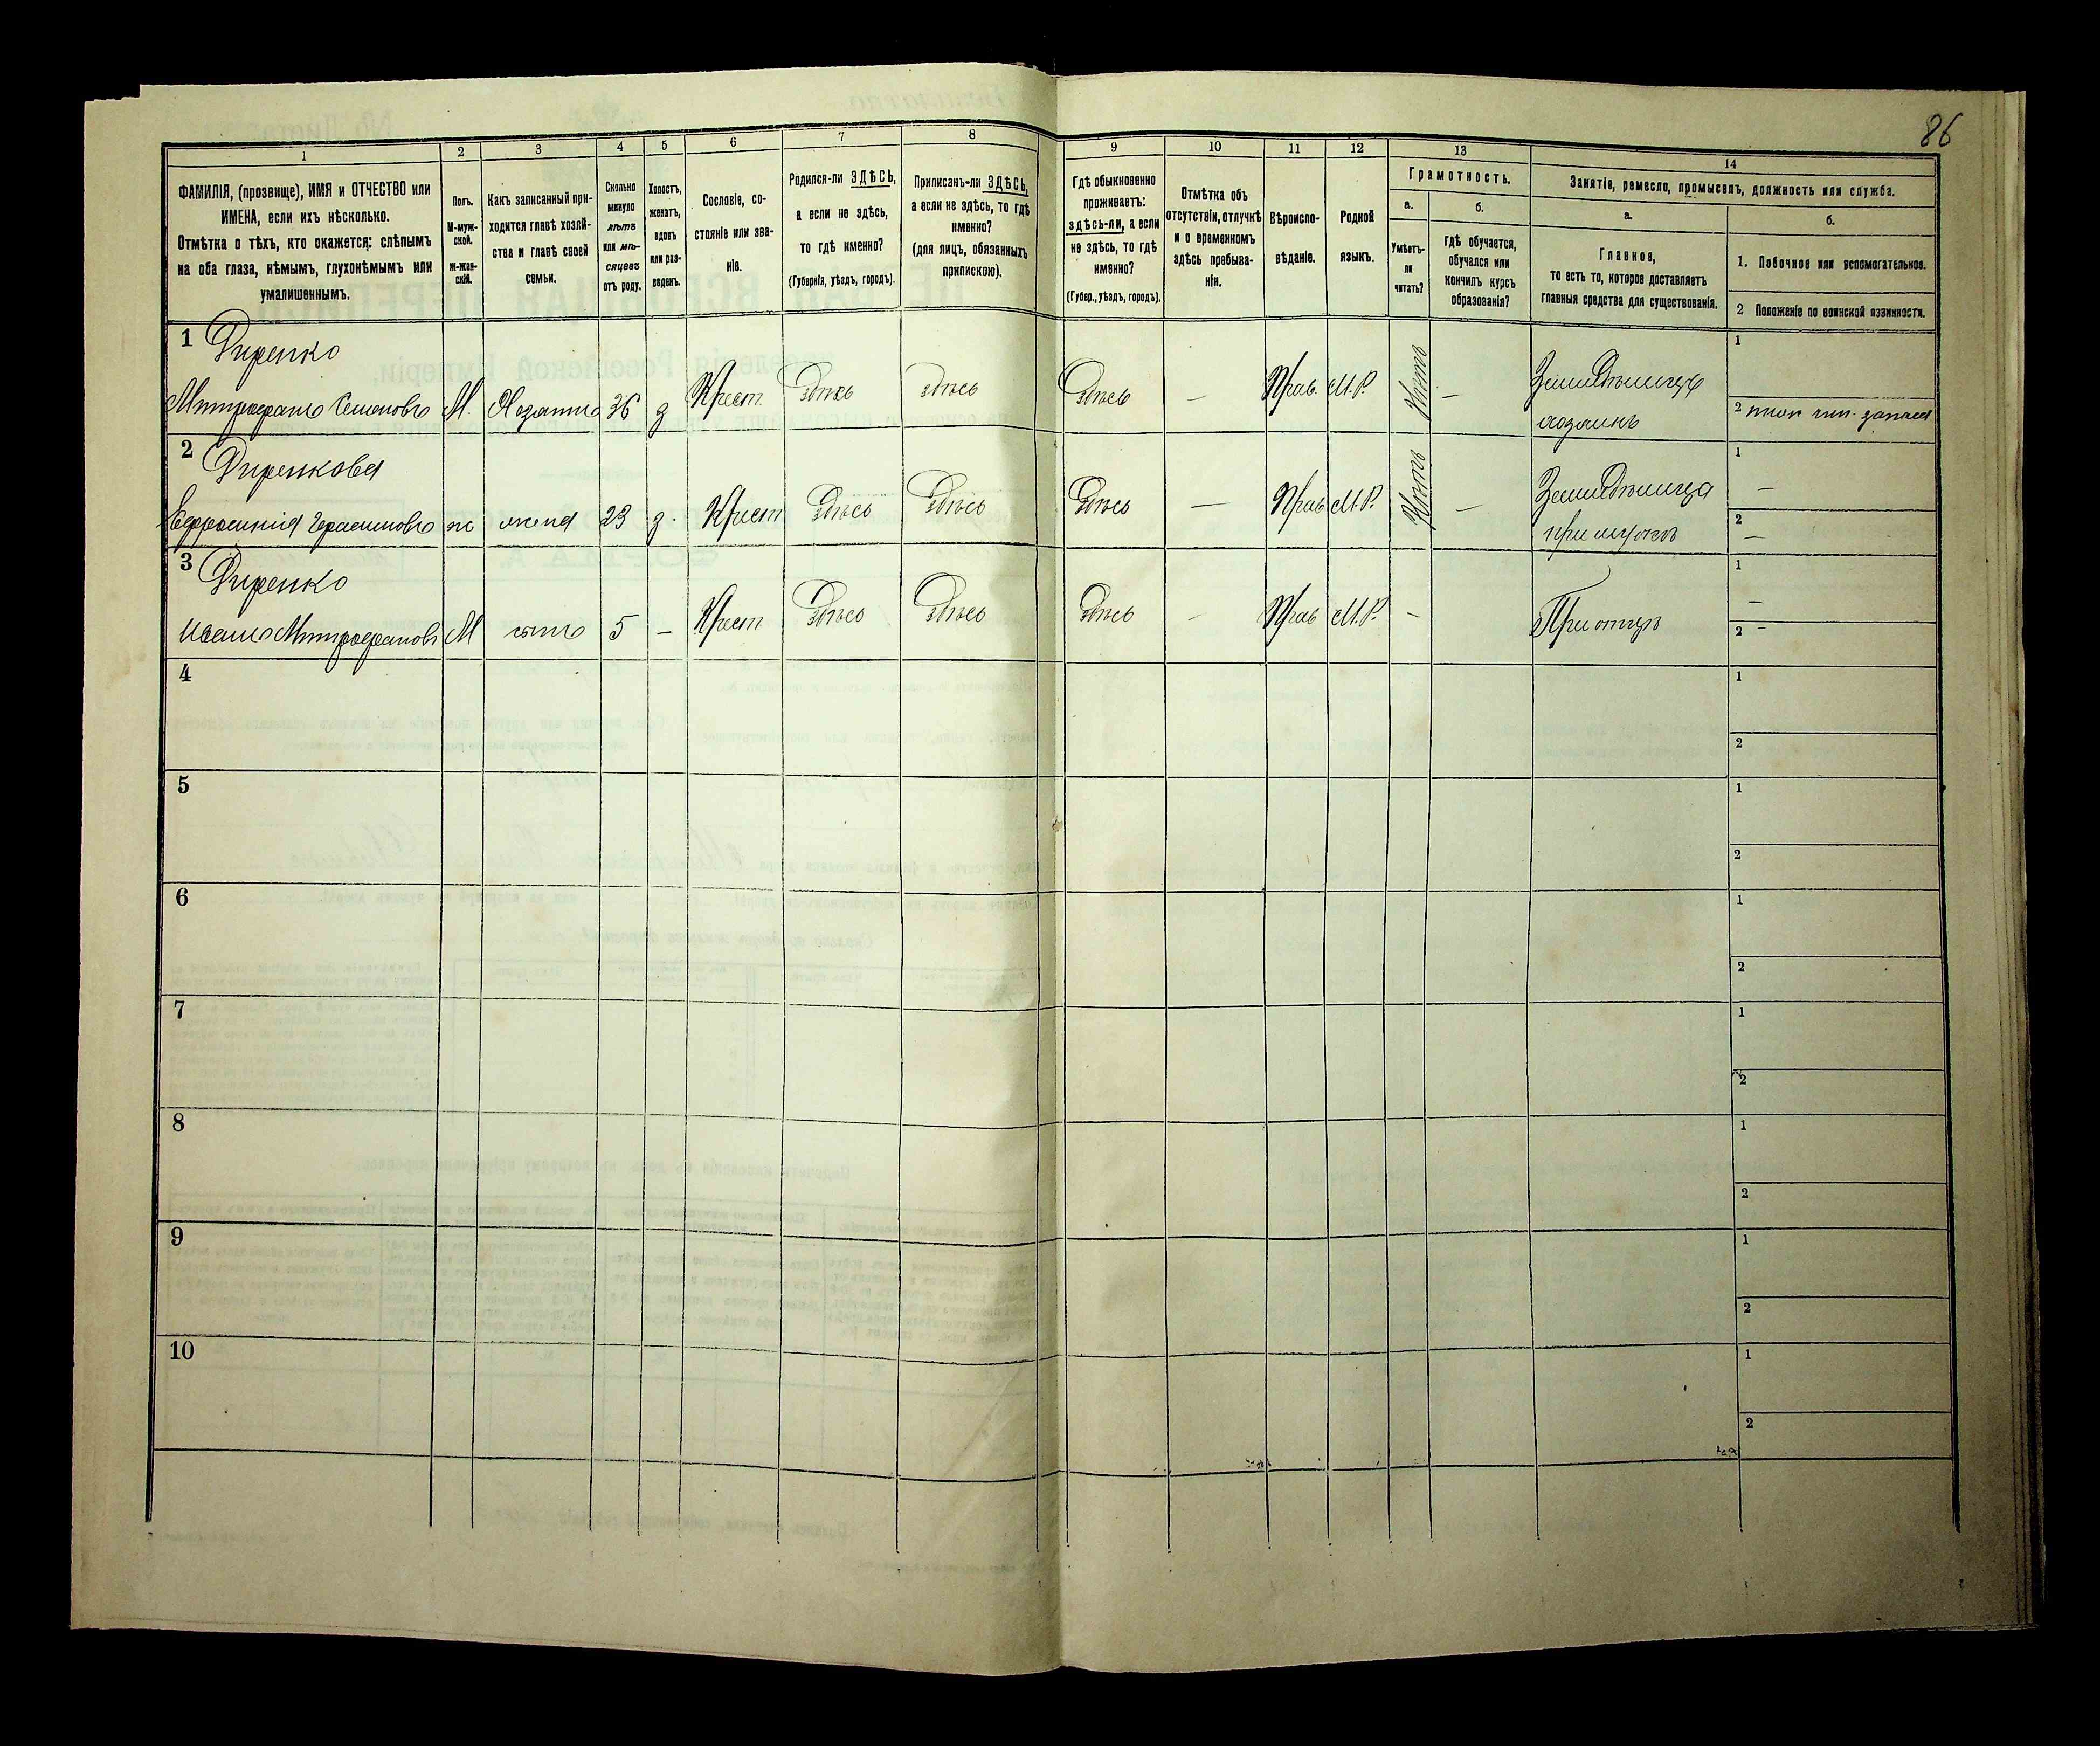 86
1
2
3
4
5
6
7
8
9
10
11
12
13
14
ФАМИЛІЯ, (прозвище), ИМЯ и ОТЧЕСТВО или
ИМЕНА, если ихъ нѣсколько.
Отмѣтка о тѣхъ, кто окажется: слѣпымъ
на оба глаза, нѣмымъ, глухонѣмымъ или
умалишеннымъ.
Полъ.
М-муж-
ской.
Ж-жен-
скій.
Какъ записанный при-
ходится главѣ хозяй-
ства и главѣ своей
семьи.
Сколько
минуло
лѣтъ
или мѣ-
сяцевъ
отъ роду.
Холостъ,
женатъ,
вдовъ
или раз-
веденъ.
Сословіе, со-
стояніе или зва-
ніе.
Родился-ли ЗДѢСЬ,
а если не здѣсь,
то гдѣ именно?
(Губернія, уѣздъ, городъ).
Приписанъ-ли ЗДѢСЬ,
а если не здѣсь, то гдѣ
именно?
(для лицъ, обязанныхъ
припискою).
Гдѣ обыкновенно
проживаетъ:
здѣсь-ли, а если
не здѣсь, то гдѣ
именно?
(Губер., уѣздъ, городъ).
Отмѣтка объ
отсутствіи, отлучкѣ
и о временномъ
здѣсь пребыва-
ніи.
Вѣроиспо-
вѣданіе.
Родной
языкъ.
Грамотность.
а.
Умѣетъ-
ли
читать?
б.
гдѣ обучается,
обучался или
кончилъ курсъ
образованія?
Занятіе, ремесло, промыселъ, должность или служба.
а.
Главное,
то есть то, которое доставляетъ
главныя средства для существованія.
б.
1. Побочное или вспомогательное.
2 Положеніе по воинской повинности.
1 Диренко
Митрофанъ Семеновъ М. Хозяинъ 36 ж Крест. Здѣсь Здѣсь Здѣсь — Прав. М.Р. Нѣтъ — Земледѣлецъ
хозяинъ
1
2
2 Диренкова
Ефросинія Герасимова ж жена 23 ж. Крест Здѣсь Здѣсь Здѣсь — Прав М.Р. Нѣтъ — Земледѣлица
при мужѣ
1 —
2 —
3 Диренко
Иванъ Митрофановъ М сынъ 5 — Крест Здѣсь Здѣсь Здѣсь — Прав М.Р. — При отцѣ
1 —
2 —
4
1
2
5
1
2
6
1
2
7
1
2
8
1
2
9
1
2
10
1
2